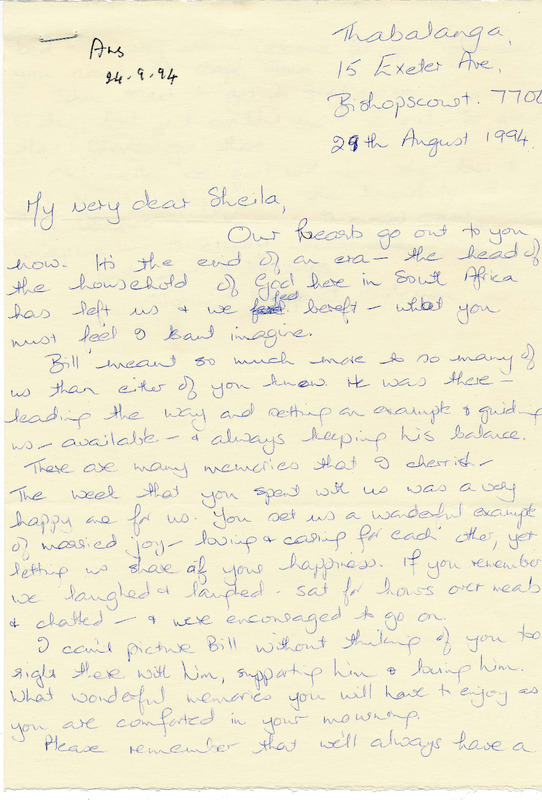 Ans
24.9.94
Thabalanga,
15 Exeter Ave,
Bishopscourt. 7700
29th August 1994.
My very dear Sheila,
Our hearts go out to you
now. It's the end of an era – the head of
the household of God here in South Africa
has left us & we feel bereft – what you
must feel I can't imagine.
Bill meant so much more to so many of
us than either of you knew. He was there –
leading the way and setting an example & guiding
us – available – & always keeping his balance.
There are many memories that I cherish –
The week that you spent with us was a very
happy one for us. You set us a wonderful example
of married joy – loving & caring for each other, yet
letting us share of your happiness. If you remember
we laughed & laughed – sat for hours over meals
& chatted – & were encouraged to go on.
I can't picture Bill without thinking of you too
right there with him, supporting him & loving him.
What wonderful memories you will have to enjoy as
you are comforted in your mourning.
Please remember that we'll always have a